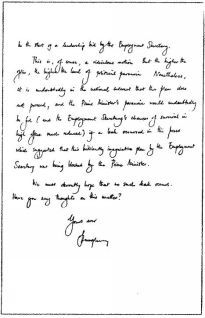 in the that of a leadership bid by the Employment Secretary.
This is, of course, a ridiculous notion that the higher the
office, the higher the level of political paranoia. Nonetheless,
it is undoubtedly in the national interest that this plan does
not proceed, and the Prime Minister's paranoia would undoubtedly
be (and the Employment Secretary's chances of survival in
high office much reduced) if a leak occurred in the press
which suggested that this brilliantly imaginative plan by the Employment
Secretary was being blocked by the Prime Minister.
We must devoutly hope that no such leak occurs.
Have you any thoughts on this matter?
Yours ever
Humphrey